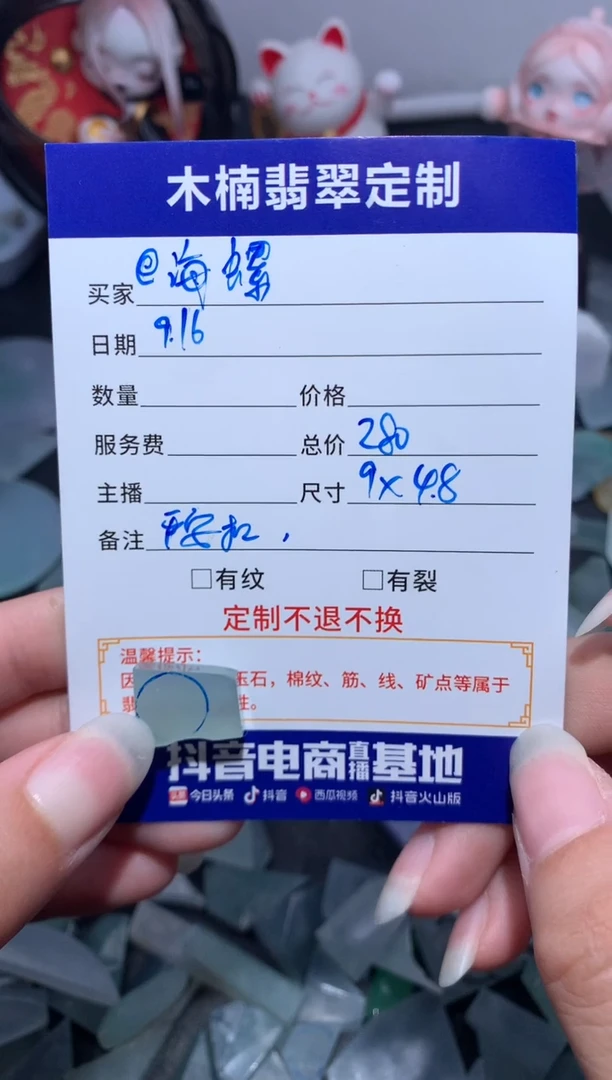 木楠翡翠定制
买家 @海螺
日期 9.16
数量 价格
服务费 总价 280
主播 尺寸 9×4.8
备注 平安扣,
□有纹 □有裂
定制不退不换
温馨提示:
因 玉石，棉纹、筋、线、矿点等属于
翡 性。
抖音电商直播基地
头条 今日头条 抖音 西瓜视频 抖音火山版